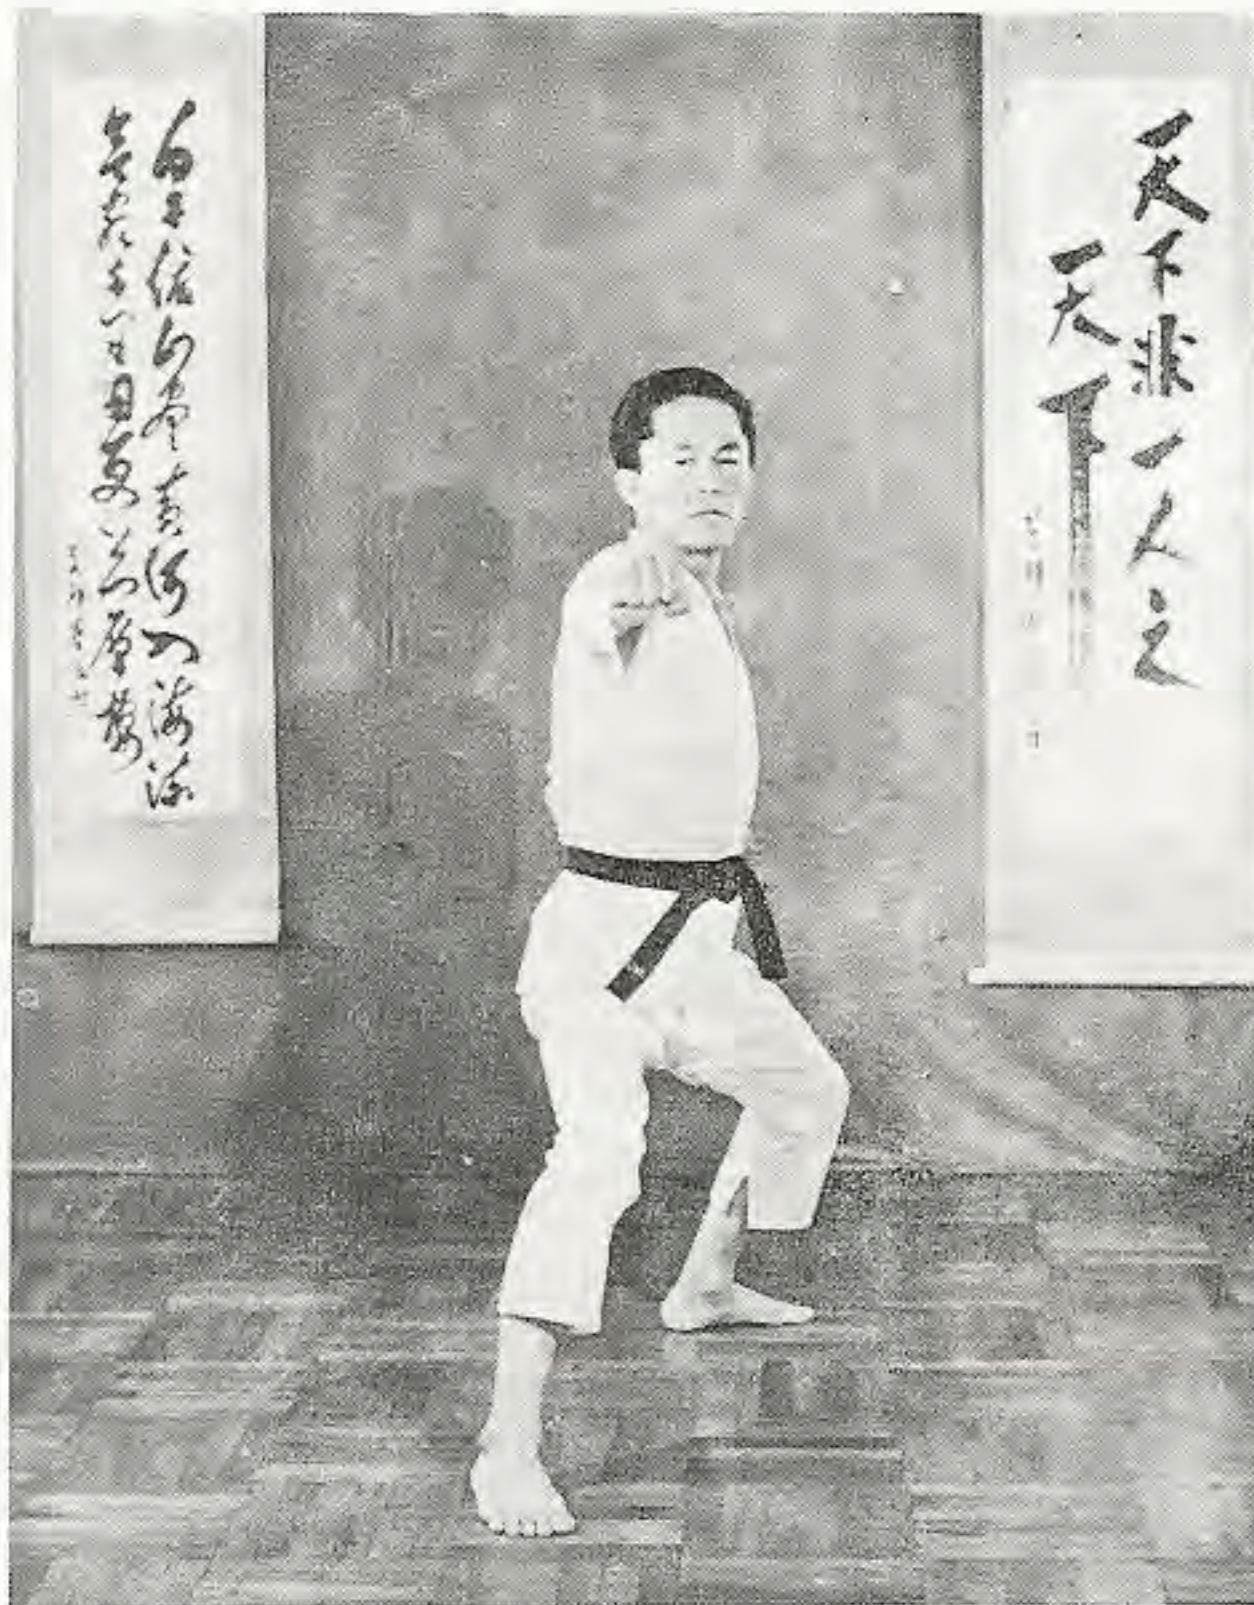 天下非一人之
天下
白日依山盡黄河入海流
欲窮千里目更上一層樓